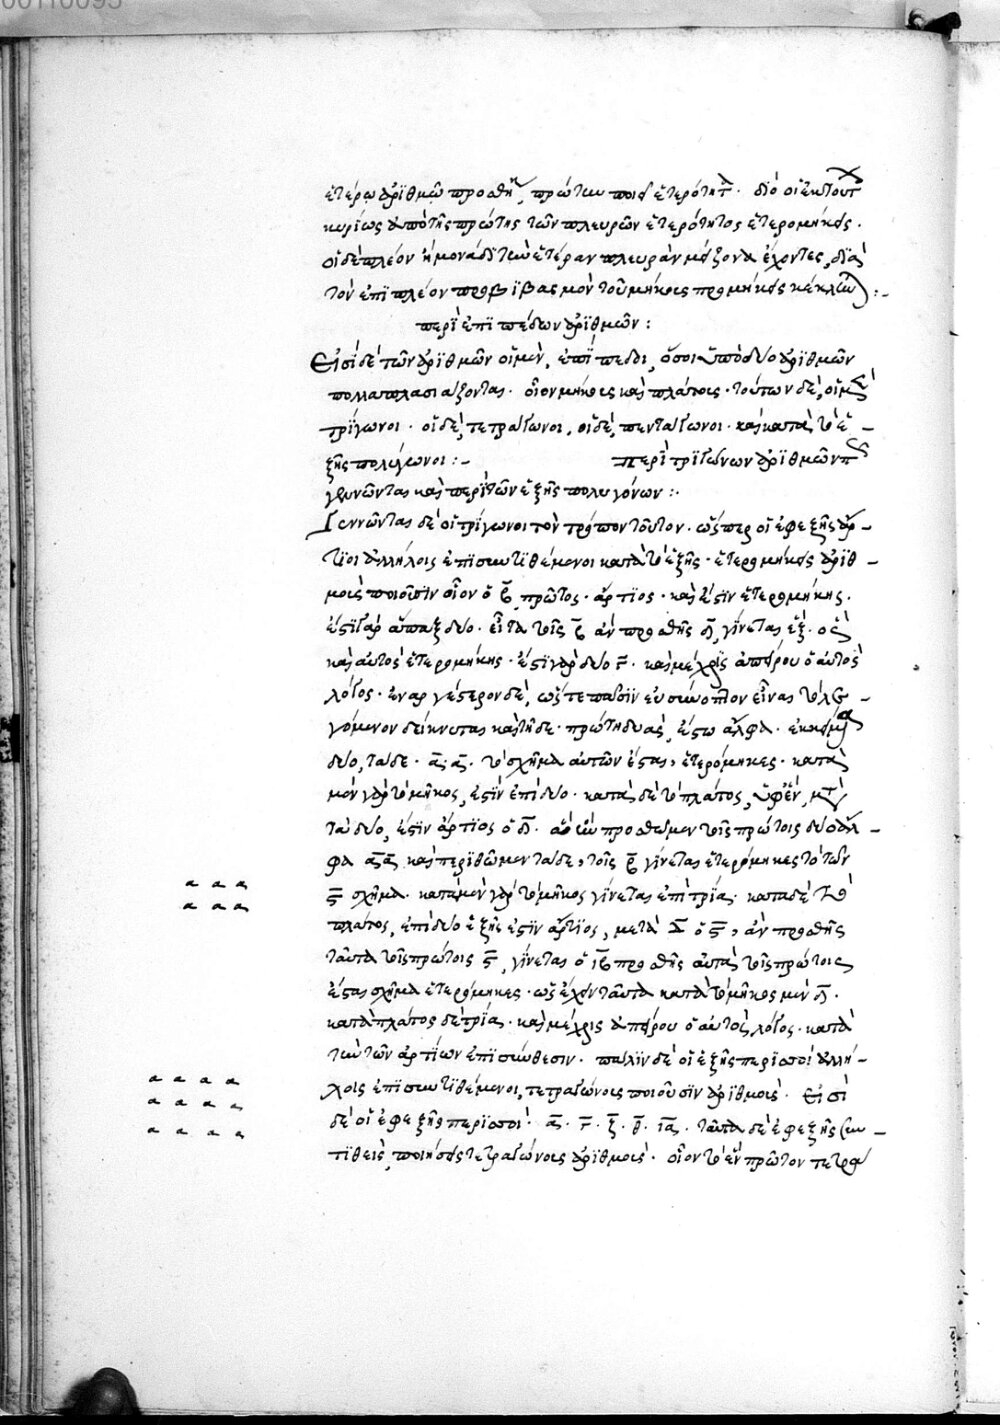 00110095
ἑτέρῳ ἀρϊθμῷ προσθῇ, πρώτην ποιεῖ ἑτερότητ. διὸ οἱ ἐκ τούτ
κυρίως ἀπὸ τῆς πρώτης τῶν πλευρῶν ἑτερότητος ἑτερομήκεις.
οἱ δὲ πλέον ἢ μονάδι τὴν ἑτέραν πλευρὰν μείζονα ἔχοντες, διὰ
τὸν ἐπϊπλέον προβϊβασμὸν τοῦ μήκους προμήκεις κέκλην:-
περϊ ἐπϊπέδων ἀρϊθμῶν:
Εἰσὶ δὲ τῶν ἀρϊθμῶν οἱ μὲν, ἐπϊπεδοι, ὅσοι ὑπὸ δύο ἀρϊθμῶν
πολλαπλασιάζονται. οἷον μήκους καὶ πλάτους. τούτων δὲ, οἱ μὲ
τρίγωνοι. οἱ δὲ, τετράγωνοι, οἱ δὲ, πεντάγωνοι. καὶ κατὰ τὸ ἑ-
ξῆς πολύγωνοι:- περὶ τριγώνων ἀρϊθμῶν π
γεννῶνται καὶ περὶ τῶν ἑξῆς πολυγόνων:-
Γεννῶνται δὲ οἱ τρίγωνοι τὸν τρόπον τοῦτον. ὥσπερ οἱ ἐφεξῆς ἄρ-
τϊοι ἀλλήλοις ἐπϊσυντϊθέμενοι κατὰ τὸ ἑξῆς. ἑτερομήκεις ἀρϊθ-
μοὺς ποιοῦσϊν οἷον ὁ β πρῶτος. ἄρτϊος. καὶ ἐστϊν ἑτερομήκης.
ἐστϊ γὰρ ἅπαξ δύο. εἶτα τοῖς β ἂν προσθῇς δ, γίνεται ἕξ. ὅς ἐ
καὶ αὐτὸς ἑτερομήκης. ἔστϊ γὰρ δὶς γ. καὶ μέχρϊς ἀπείρου ὁ αὐτὸς
λόγος. ἐναργέστερον δὲ, ὥστε πᾶσϊν εὐσύνοπτον εἶναι τὸ λε-
γόμενον δείκνυται καὶ τῇδε. πρώτη δυὰς, ἔστω ἄλφα. ἐκκείμ
δύο, τάδε. α α. τὸ σχῆμα αὐτῶν ἔσται, ἑτερόμηκες. κατὰ
μὲν γὰρ τὸ μῆκος, ἐστϊν ἐπὶ δύο. κατὰ δὲ τὸ πλάτος, ὑφ' ἓν, μετ
τὰ δύο, ἐστϊν ἄρτϊος ὁ δ. ἂν προσθῶμεν τοῖς πρώτοις δυσὶ ἄλ-
φα α α. καὶ περϊθῶμεν τάδε, τοῖς β γίνεται ἑτερόμηκες τὸ τῶν
ϛ σχῆμα. κατὰ μὲν γὰρ τὸ μῆκος γίνεται ἐπὶ τρία. κατὰ δὲ τὸ
πλάτος, ἐπὶ δύο ἑξῆς ἐστϊν ἄρτϊος, μετὰ δ ὁ ϛ, ἂν προσθῇς
ταῦτα τοῖς πρώτοις ϛ, γίνεται ὁ ιβ προσθῇς αὐτὰ τοῖς πρώτοις
ἔσται σχῆμα ἑτερόμηκες. ὡς ἔχειν ταῦτα κατὰ τὸ μῆκος μὲν δ.
κατὰ πλάτος δὲ τρία. καὶ μέχρις ἀπείρου ὁ αὐτὸς λόγος. κατὰ
τὴν τῶν ἀρτϊων ἐπϊσύνθεσιν. πάλϊν δὲ οἱ ἑξῆς περϊσσοὶ ἀλλή-
λοις ἐπϊσυντϊθέμενοι, τετραγώνους ποιοῦσϊν ἀρϊθμούς. Εἰσὶ
δὲ οἱ ἐφεξῆς περϊσσοὶ. α. γ. ε. ζ. θ. ια. ταῦτα δὲ ἐφεξῆς συν-
τϊθεὶς, ποιήσεις τετραγώνους ἀρϊθμούς. οἷον τὸ ἓν πρῶτον τετρα
α α α
α α α
α α α α
α α α α
α α α α